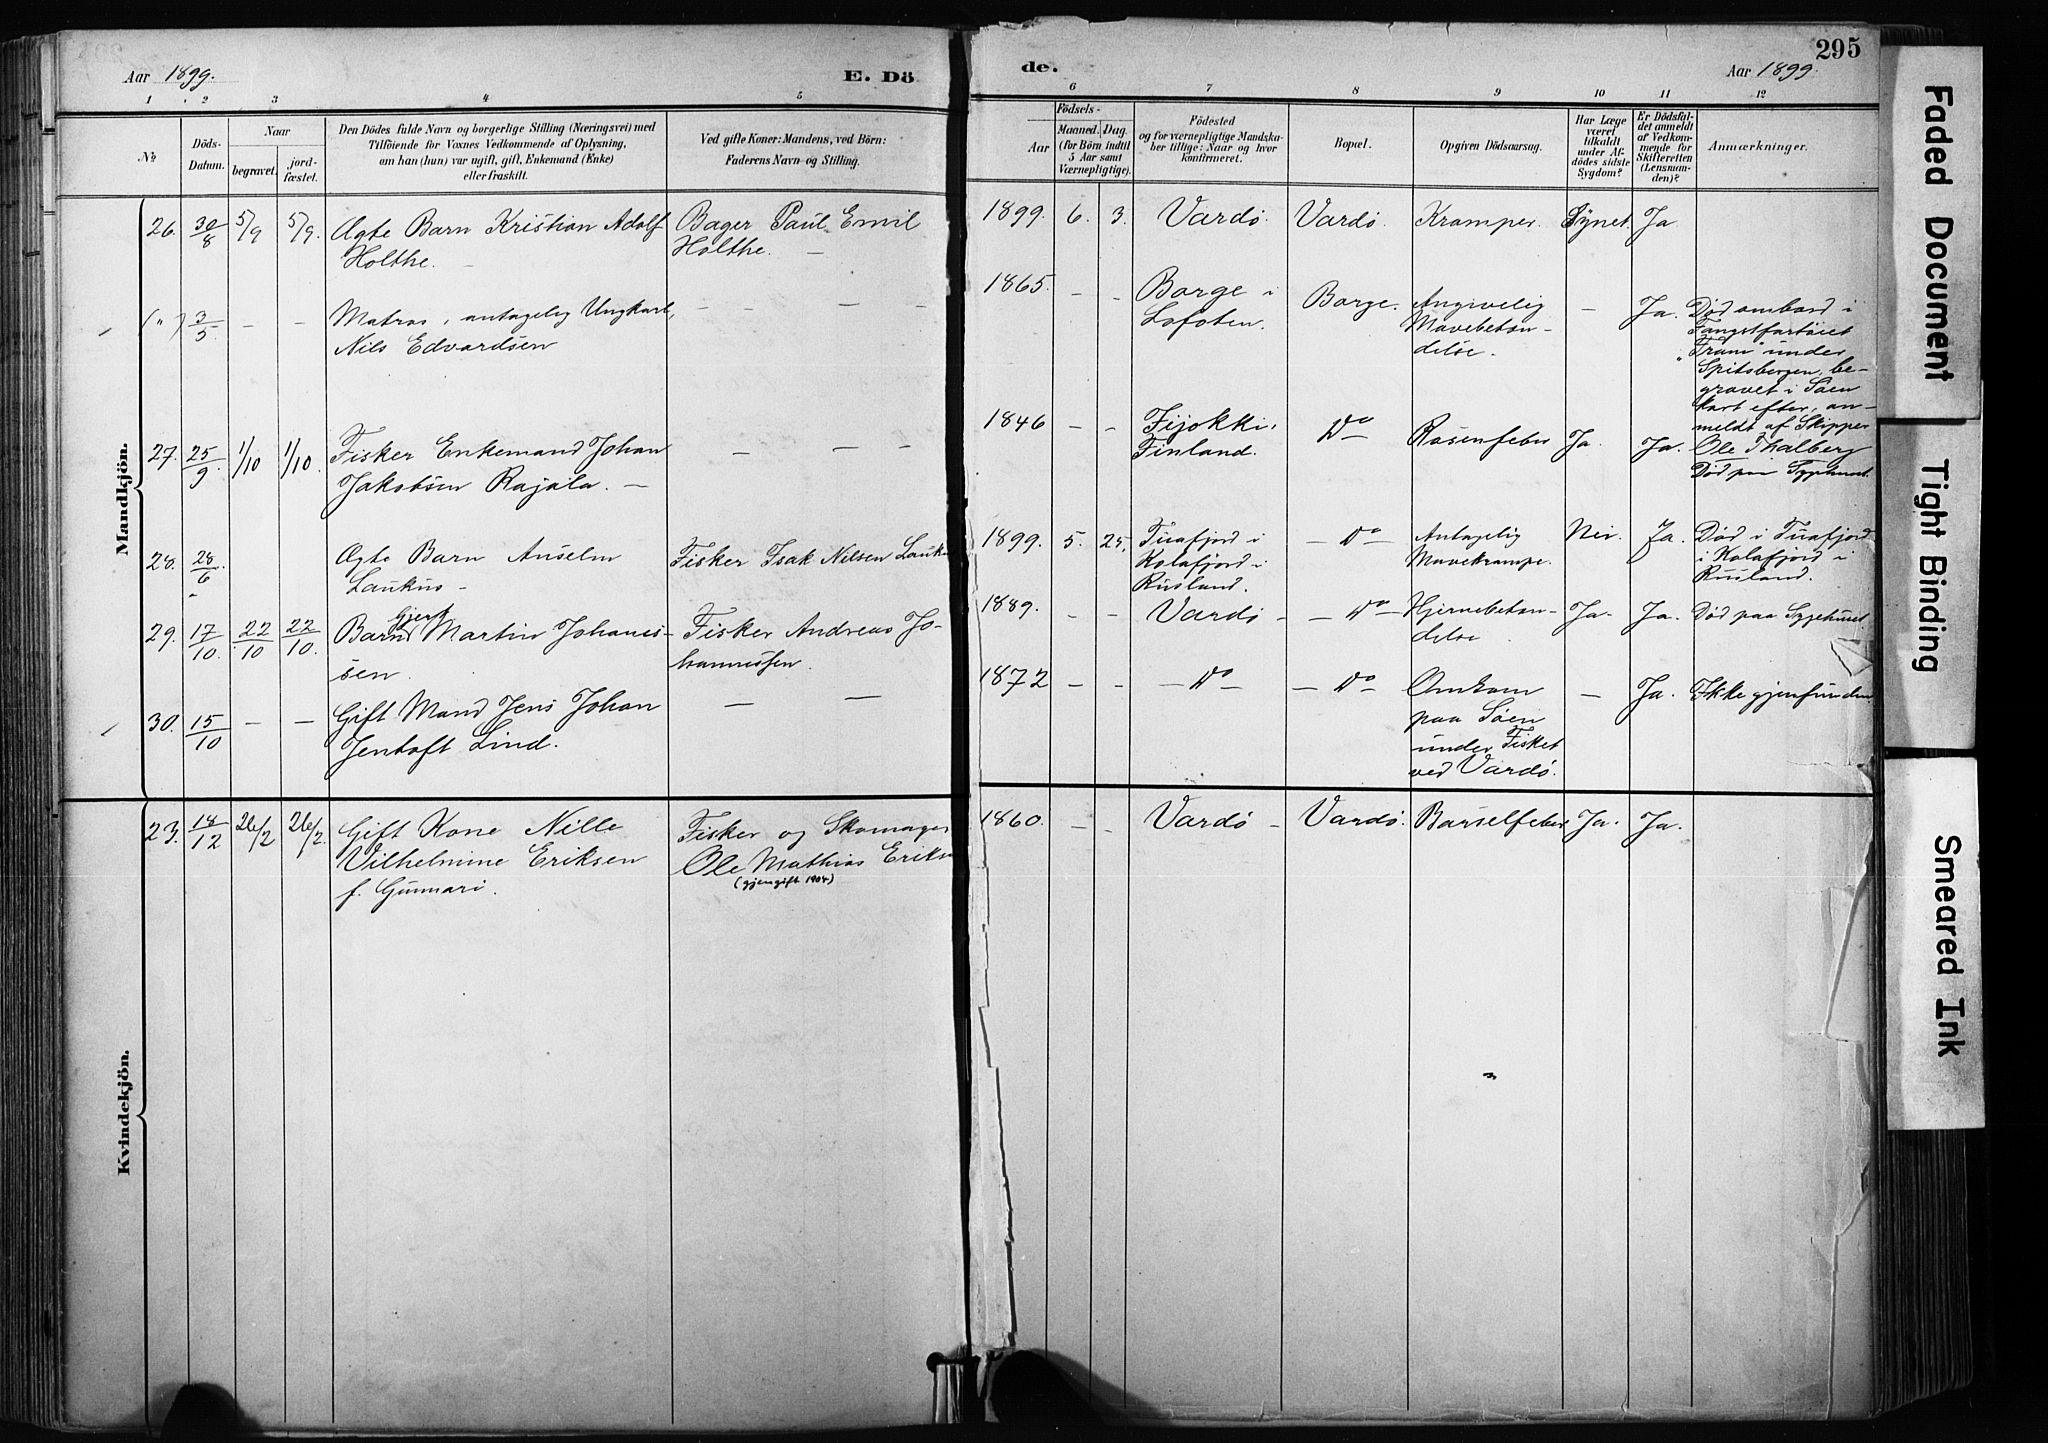 Aar 1899.
E. Dö
de.
Aar 1899.
295
1 2 3 4 5 6 7 8 9 10 11 12
No
Döds-
Datum.
Naar
begravet.
jord-
fæstet.
Den Dödes fulde Navn og borgerlige Stilling (Næringsvei) med
Tilföiende for Voxnes Vedkommende af Oplysning,
om han (hun) var ugift, gift, Enkemand (Enke)
eller fraskilt.
Ved gifte Koner: Mandens, ved Börn:
Faderens Navn og Stilling.
Födsels-
Aar
Maaned.
Dag.
(for Börn indtil
5 Aar samt
Værnepligtige).
Födested
og for værnepligtige Mandska-
ber tillige: Naar og hvor
konfirmeret.
Bopæl.
Opgiven Dödsaarsag.
Har Læge
været
tilkaldt
under Af-
dödes sidste
Sygdom?
Er Dödsfal-
det anmeldt
af Vedkom-
mende for
Skifteretten
(Lensman-
den)?
Anmærkninger.
Mandkjön.
26. 30/8 5/9 5/9. Ægte Barn Kristian Adolf
Holthe. —
Bager Paul Emil
Holthe. —
1899. 6. 3. Vardö. Vardö. Kramper. Synet. Ja
(") 3/5. — — Matros, antagelig Ungkarl,
Nils Edvardsen
— — — —
1865. — — Borge i
Lofoten.
Borge. Angivelig
Mavebetæn-
delse.
— Ja. Död ombord i
Fangstfartöiet
"Fram" under
Spitsbergen, be-
gravet i Söen
kort efter, an-
meldt af Skipper
Ole Thalberg
27. 25/9. 1/10 1/10. Fisker Enkemand Johan
Jakobsen Rajala. —
— — —
1846 — — Fijokki,
Finland.
Do Rosenfeber Ja. Ja.
Död paa Sygehuset.
28. 28/6 Ægte Barn Anselm
Laukus —
Fisker Isak Nilsen
1899. 5. 25. i
Kolafjord i
Rusland.
— Do — Antagelig
Mavekrampe.
Nei. Ja. Död i
i Kolafjord i
Rusland.
29. 17/10. 22/10 22/10. Barn Gjert Martin Johanes-
sen.
Fisker Andreas Jo-
hannessen.
1889. — — Vardö — — Do — Hjernebetæn-
delse.
Ja. Ja. Död paa Sygehuset.
30. 15/10 — — Gift Mand Jens Johan
Jentoft Lind.
— —
1872 — — — Do — — Do — Omkom
paa Söen
under Fisket
ved Vardö.
— Ja. Ikke gjenfunden.
Kvindekjön.
23. 18/12 26/2 26/2. Gift Kone Nille
Vilhelmine Eriksen
f. Gunnari.
Fisker og Skomager
Ole Mathias Eriksen
(gjengift 1904)
1860. — — Vardö — Vardö. Barselfeber Ja. Ja.
Faded Document
Tight Binding
Smeared Ink